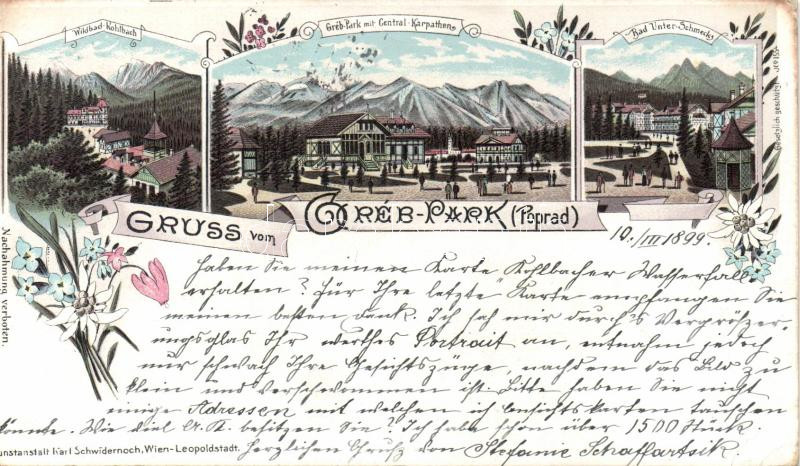 Wildbad-Kohlbach
Gréb-Park mit Central-Karpathens
Bad Unter-Schmecks
Gesetzlich geschützt.
GRUSS vom GRÉB-PARK (Poprad)
10./III 1899.
Nachahmung verboten.
Haben Sie meinen Karte Kohlbacher Wasserfall
erhalten? Für Ihre letzte Karte empfangen Sie
meinen besten Dank. Ich sah mir durch's Vergrösser-
ungsglas Ihr werthes Portrait an, entnahm jedoch
nur schwach Ihre Gesichtszüge, nachdem das Bild zu
klein und verschwommen ist. Bitte haben Sie nicht
einige Adressen mit welchen ich Ansichtskarten tauschen
könnte. Wie viel A. K. besitzen Sie? Ich habe schon über 1500 Stück.
unstanstalt Karl Schwidernoch, Wien-Leopoldstadt.
Herzlichen Gruß von Stefanie Schaffartsik.